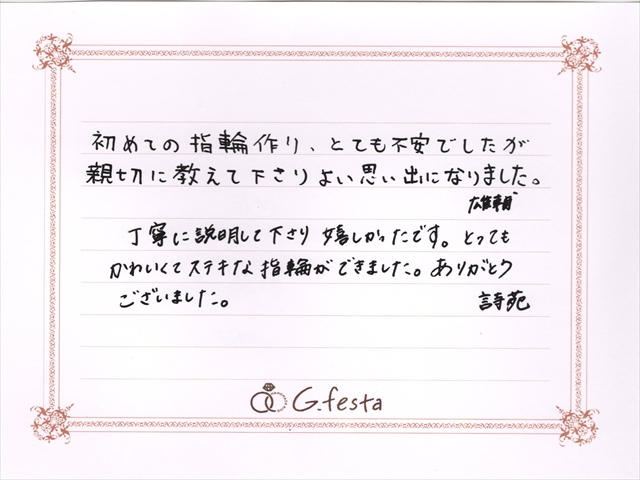 初めての指輪作り、とても不安でしたが
親切に教えて下さりよい思い出になりました。
雄頼
丁寧に説明して下さり嬉しかったです。とっても
かわいくてステキな指輪ができました。ありがとう
ございました。
詩苑
G.festa